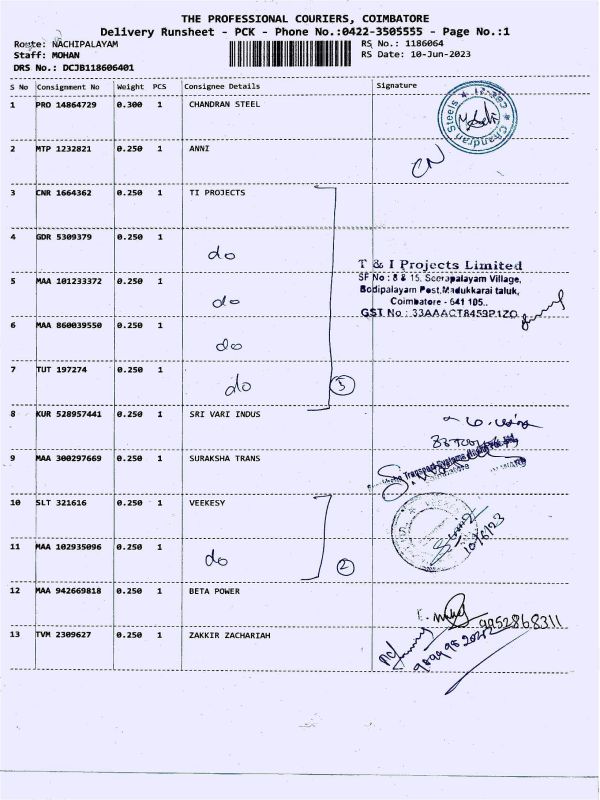 THE PROFESSIONAL COURIERS, COIMBATORE
Delivery Runsheet - PCK - Phone No.:0422-3505555 - Page No.:1
Route: NACHIPALAYAM RS No.: 1186064
Staff: MOHAN RS Date: 10-Jun-2023
DRS No.: DCJB118606401
S No Consignment No Weight PCS Consignee Details Signature
1 PRO 14864729 0.300 1 CHANDRAN STEEL
Chandran Steels
2 MTP 1232821 0.250 1 ANNI
CN
3 CNR 1664362 0.250 1 TI PROJECTS
4 GDR 5309379 0.250 1
do
T & I Projects Limited
SF No : 8 & 15, Seerapalayam Village,
5 MAA 101233372 0.250 1
Bodipalayam Post, Madukkarai taluk,
do
Coimbatore - 641 105..
GST No : 33AAACT8459P1ZO
6 MAA 860039550 0.250 1
do
7 TUT 197274 0.250 1
do 5
8 KUR 528957441 0.250 1 SRI VARI INDUS
9 MAA 300297669 0.250 1 SURAKSHA TRANS
Coimbatore
10 SLT 321616 0.250 1 VEEKESY
10/6/23
11 MAA 102935096 0.250 1
do 2
12 MAA 942669818 0.250 1 BETA POWER
9952868311
13 TVM 2309627 0.250 1 ZAKKIR ZACHARIAH